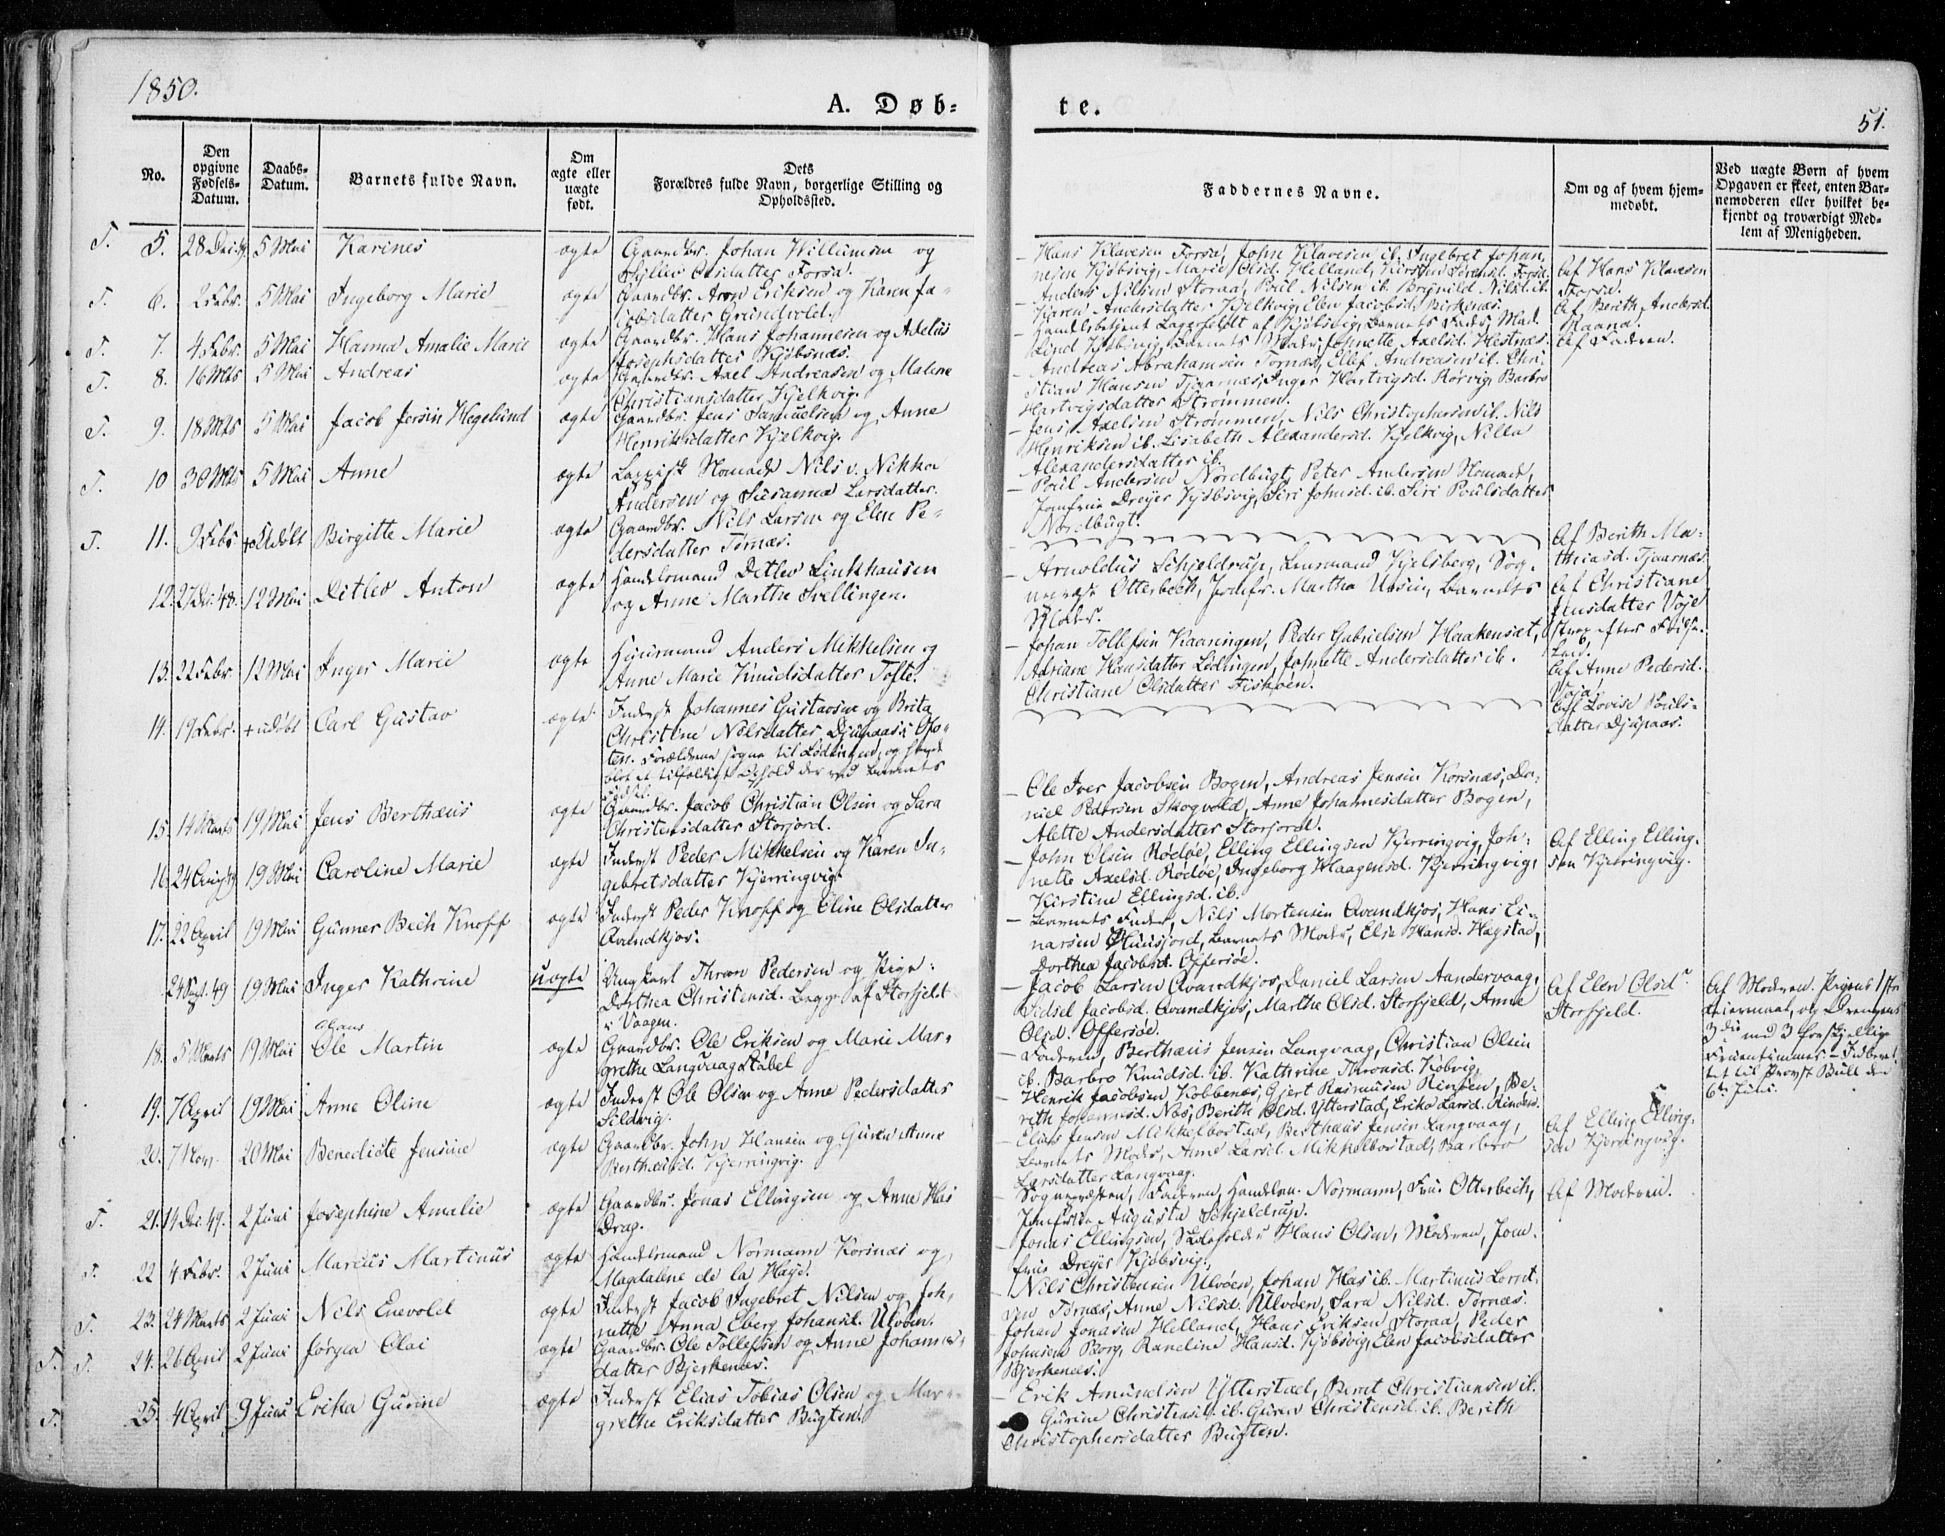 1850.
A. Døb=
te.
51.
No.
Den opgivne Fødsels-Datum.
Daabs-Datum.
Barnets fulde Navn.
Om ægte eller uægte født.
Dets Forældres fulde Navn, borgerlige Stilling og Opholdssted.
Faddernes Navne.
Om og af hvem hjemmedøbt.
Ved uægte Børn af hvem
Opgaven er skeet, enten Bar-
nemoderen eller hvilket be-
kjendt og troværdigt Med-
lem af Menigheden.
T. 5. 28 Dec. 49 5 Mai Karines ægte Gaardbr. Johan Willumsen og
Olsdatter Forsø.
Hans Klavesen Forsø, John Klavesen ib. Ingebret Johan-
nesen Kjøbsvig, Marie Olsd. Helland, Forsø.
Af Hans Klavesen
Forsø.
T. 6. 2 Febr. 5 Mai Ingeborg Marie ægte Gaardbr. Aron Eriksen og Karen Ja-
cobsdatter Grundvold.
Anders Nilsen Storaa, Poul Nilsen ib. Bergnild Nilsd. ib.
Karen Andersdatter Kjelkvig, Elen Jacobsd. Birkenæs.
Af Berith Andersd.
T. 7. 4 Febr. 5 Mai Hanna Amalie Marie ægte Gaardbr. Hans Johannesen og Axelus
Josephsdatter Kjøbsnæs.
Handelsbetjent Lagerfeldt af Kjøbsvig, Barnets Fader, Mad.
Lind Kjøbsvig, Barnets Moder, Johnette Axelsd. Hestnæs.
Af Faderen.
T. 8. 16 Mts 5 Mai Andreas ægte Gaardbr. Axel Andreasen og Malene
Christiansdatter Kjelkvig.
Andreas Abrahamsen Tornæs, Ellef Andreasen ib. Chri-
stian Hansen Tjaarnæs, Inger Hartvigsd. Rørvig, Barbro
Hartvigsdatter Strømmen.
T. 9. 18 Mts 5 Mai Jacob Jersin Hegelund ægte Gaardbr. Jens Samuelsen og Anne
Henriksdatter Kjelkvig.
Jens Axelsen Strømmen, Nils Christophersen ib. Nils
Henriksen ib. Lisabeth Alexandersd. Kjelkvig, Nilla
Alexandersdatter ib.
T. 10 30 Mts 5 Mai Anne ægte Lappisk Nomade Nils v. Nikka
Andersen og Susanna Larsdatter.
Poul Andersen Nordbugt, Peter Andersen Nomade,
Jomfrue Dreyer Kjøbsvig, Siri Johnsd. ib. Siri Poulsdatter
Nordbugt.
T. 11. 9 Febr. + udøbt Birgitte Marie ægte Gaardbr. Nils Larsen og Elen Pe-
dersdatter Tornæs.
Af Berith Ma-
thiasd. Tjaarnæs.
12. 27 Dec. 48. 12 Mai Ditlev Anton ægte Handelsmand Ditlev Linkhausen
og Anne Marthe Svellingen.
Arnoldus Schjeldrup, Lensmand Kjelsberg, Sog-
nepræst Otterbech, Jomfr. Martha Ursin, Barnets
Moder.
Af Christiane
Jensdatter Voje
strax efter Fødse-
len.
13. 22 Febr. 12 Mai Inger Marie ægte Huusmand Anders Mikkelsen og
Anne Marie Knudsdatter Tofte.
Johan Tollefsen Kaaringen, Peder Gabrielsen Haakensæt,
Adriane Hansdatter Lødingen, Johnette Andersdatter ib.
Christiane Olsdatter Fiskøen.
Af Anne Pedersd.
Voja.
14. 19 Febr. + udøbt Carl Gustav ægte Inderst Johannes Gustavsen og Brita
Christine Nilsdatter Djupaas i Ofo-
ten. Forældrene sogne til Lødingen, og havde
blot et tilfældigt Ophold der ved Barnets
Fødsel.
Af Lovise Pouls-
datter Djupaas.
15. 14 Marts 19 Mai Jens Berthæus ægte Gaardbr. Jacob Christian Olsen og Sara
Christensdatter Storjord.
Ole Iver Jacobsen Bogen, Andreas Jensen Korsnæs, Da-
niel Pedersen Skogvold, Anne Johannesdatter Bogen,
Alette Andersdatter Storjord.
16. 24 Aug. 49 19 Mai Caroline Marie ægte Inderst Peder Mikkelsen og Karen In-
gebretsdatter Kjerringvig.
John Olsen Rødøe, Elling Ellingsen Kjerringvig, Joh-
nette Axelsd. Rødøe, Ingeborg Haagensd. Kjerringvig,
Kirstine Ellingsd. ib.
Af Elling Elling-
sen Kjerringvig.
17. 22 April 19 Mai Gunner Bech Knoff ægte Inderst Peder Knoff og Oline Olsdatter
Qvandkjos.
Barnets Fader, Nils Mortensen Qvandkjos, Hans Ei-
narsen Huusjord, Barnets Moder, Else Hansd. Hegstad,
Dorthea Jacobsd. Offersøe.
24 Sept. 49 19 Mai Inger Kathrine uægte Ungkarl Thron Pedersen og Pige:
Dorthea Christensd. Begge af Storfjeld
i Vaagen.
Jacob Larsen Qvandkjos, Daniel Larsen Aandervaag,
Sidsel Jacobsd. Qvandkjos, Marthe Olsd. Storfjeld, Anne
Olsd. Offersøe.
Af Elen Olsdr.
Storfjeld.
Af Moderen. Pigens 1ste
Leiermaal, og Drengens
3die med 3 forskjellige
Fruentimmer. – Indberet-
tet til Provst Bull den
6te Juni.
18. 5 Marts 19 Mai Hans
Ole Martin ægte Gaardbr. Ole Eriksen og Marie Mar-
grethe Langvaag Støbel
Faderen, Berthæus Jensen Langvaag, Christian Olsen
ib. Barbro Knudsd. ib. Kathrine Thronsd. Købvig.
19. 7 April 19 Mai Anne Oline ægte Inderst Ole Olsen og Anne Pedersdatter
Sildvig.
Henrik Jacobsen Kobbenes, Gjert Rasmussen Rinøen, Be-
rith Johannesd. Næs, Berith Olsd. Ytterstad, Erika Larsd. Rinøen.
20. 7 Nov. 20 Mai Benedicte Jensine ægte Gaardbr. John Hansen og Guren Anne
Berthæusd. Kjerringvig.
Elias Jensen Mikkelbostad, Berthæus Jensen Langvaag,
Barnets Moder, Anne Larsd. Mikkelbostad, Barbro
Larsdatter Langvaag.
Af Elling Elling-
sen Kjerringvig.
T. 21. 14 Dec. 49. 2 Juni Josephine Amalie ægte Gaardbr. Jonas Ellingsen og Anne Has
Drag.
Sognepræsten, Faderen, Handelsm. Normann, Fru Otterbech,
Jomfrue Augusta Schjeldrup.
Af Moderen.
T. 22 4 Febr. 2 Juni Marcus Martinus ægte Handelsmand Normann Korsnæs og
Magdalene de la Haye.
Jonas Ellingsen, Hans Olsen, Moderen, Jom-
frue Dreyer Kjøbsvig.
T. 23. 24 Marts 2 Juni Nils Enevold ægte Inderst Jacob Ingebret Nilsen og Joh-
nette Anna Eberg Johansd. Ulvøen.
Nils Christensen Ulvøen, Johan Has ib. Martinus Lornt-
sen Tornæs, Anne Nilsd. Ulvøen, Sara Nilsd. Tornæs.
T. T. 24. 26 April 2 Juni Jørgen Olai ægte Gaardbr. Ole Tollefsen og Anne Johannes-
datter Bjerkenæs.
Johan Jonasen Helland, Hans Eriksen Storaa, Peder
Johnsen Borg, Randine Hansd. Kjøbsvig, Elen Jacobsdatter
Bjerkenæs.
T. 25. 4 April 9 Juni Erika Gurine ægte Inderst Elias Tobias Olsen og Mar-
grethe Eriksdatter Bugten.
Erik Amundsen Ytterstad, Bernt Christiansen ib.
Gurine Christensd. ib. Guren Christensd. ib. Berith
Christophersdatter Bugten.